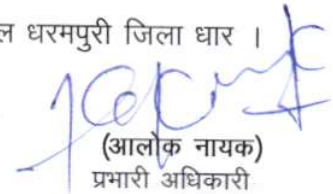 धरमपुरी जिला धार ।
(आलोक नायक)
प्रभारी अधिकारी